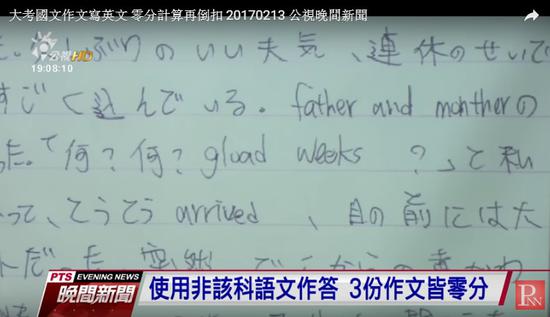 大考國文作文寫英文 零分計算再倒扣 20170213 公視晚間新聞
公視HD
19:08:10
ぶりのいい天気、連休のせいで
すごく込んでいる。father and montherの
った。「何?何?gload weeks ?」と私
って、とうとう arrived 、目の前にはた
PTS EVENING NEWS
晚間新聞
使用非該科語文作答 3份作文皆零分
PNN